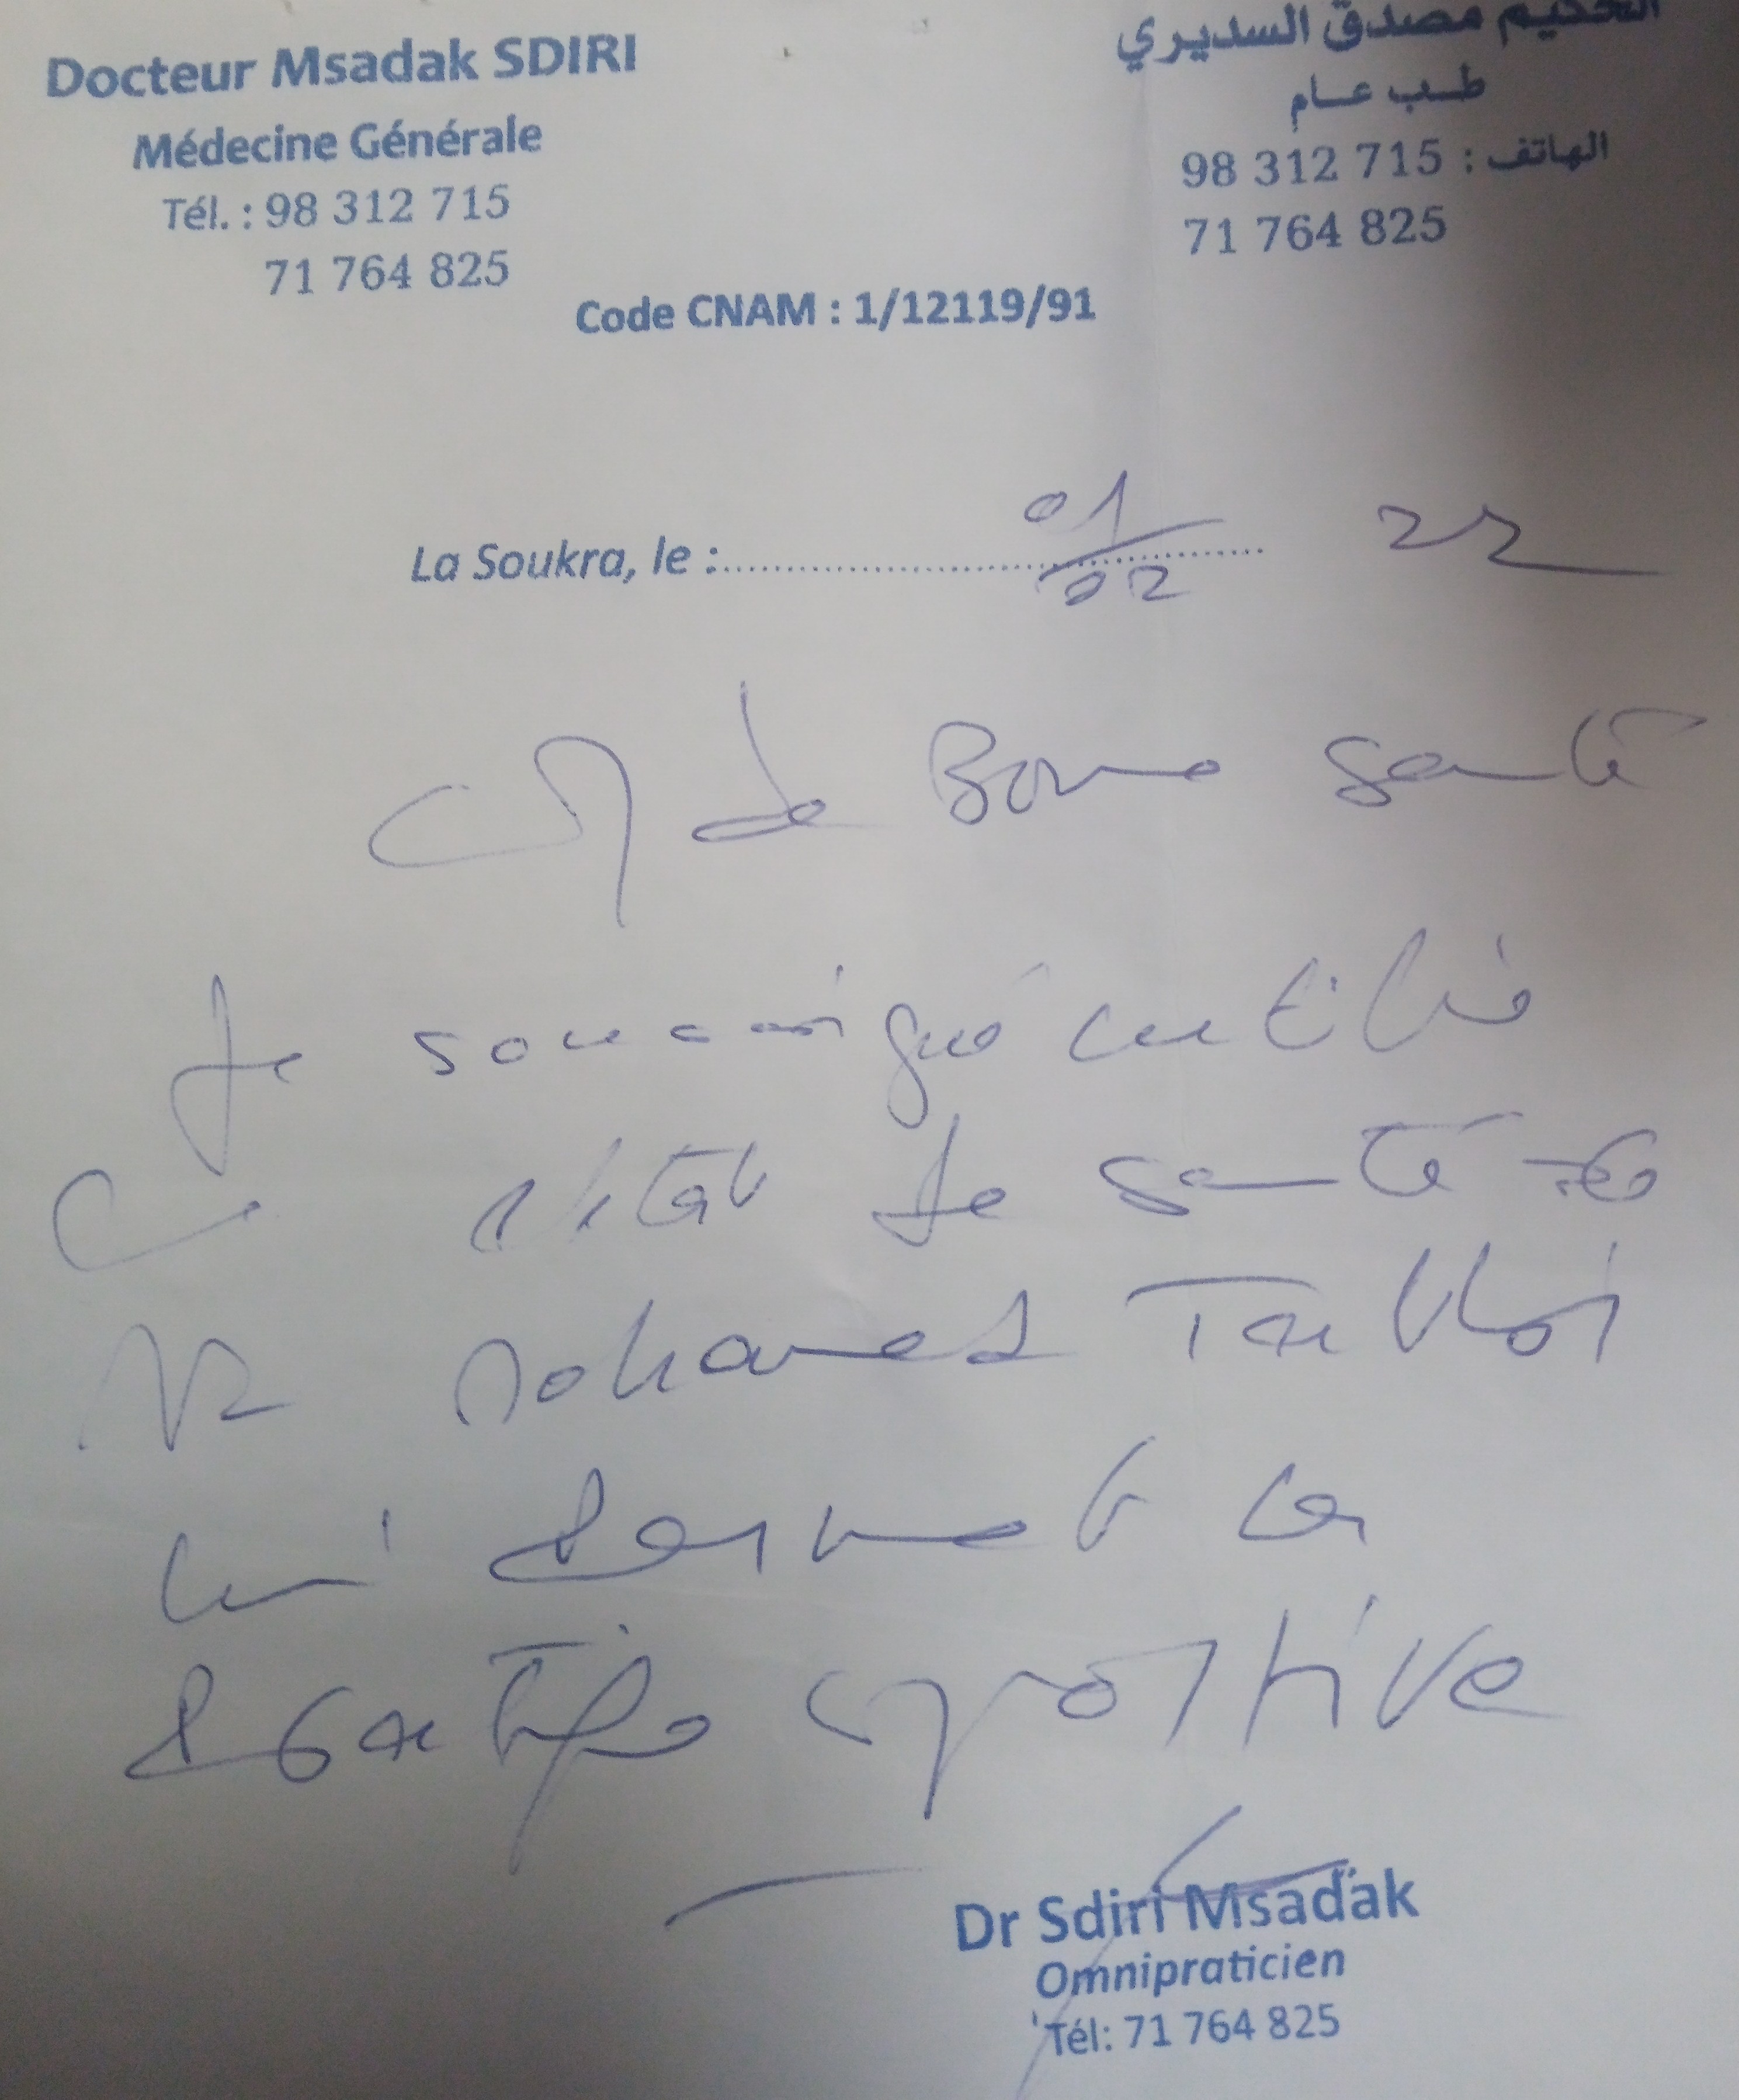 Docteur Msadak SDIRI
Médecine Générale
Tél. : 98 312 715
71 764 825
الحكيم مصدق السديري
طب عام
الهاتف : 98 312 715
71 764 825
Code CNAM : 1/12119/91
La Soukra, le : 01/02 22
de Bonne santé
Je soussigné certifie
l'état de santé de
Mr Mohamed
lui permet la
pratique sportive
Dr Sdiri Msadak
Omnipraticien
Tél: 71 764 825